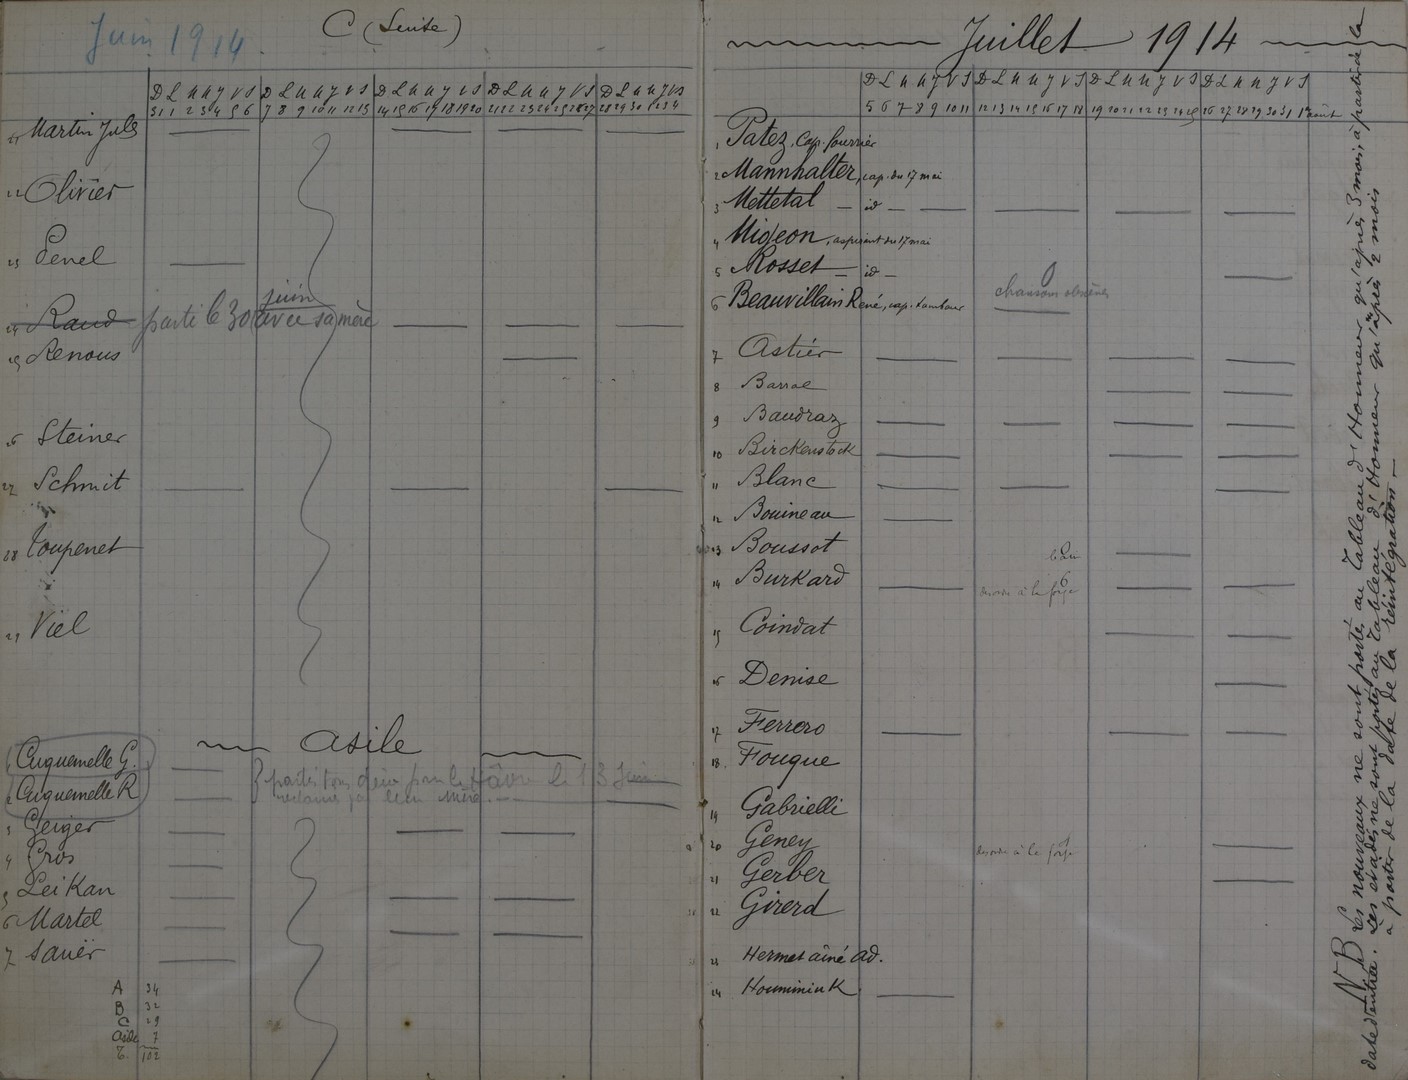 Juin 1914.
C (Suite)
D L M M J V S D L M M J V S D L M M J V S D L M M J V S D L M M J V S
31 1 2 3 4 5 6 7 8 9 10 11 12 13 14 15 16 17 18 19 20 21 22 23 24 25 26 27 28 29 30 1 2 3 4
21 Martin Jules
22 Olivier
23 Penel
24 Raud parti le 30 juin avec sa mère
25 Renous
26 Steiner
27 Schmit
28 Toupenet
29 Viel
Asile
1 Cuquemelle G.
2 Cuquemelle R
partis tous deux pour le Hâvre le 13 Juin
réclamés par leur mère.
3 Geiger
4 Gros
5 Leikan
6 Martel
7 Sauër
A 34
B 32
C 29
Asile 7
T. 102
Juillet 1914
D L M M J V S D L M M J V S D L M M J V S D L M M J V S
5 6 7 8 9 10 11 12 13 14 15 16 17 18 19 20 21 22 23 24 25 26 27 28 29 30 31 1er août
1 Patez, Cap. fourrier
2 Mannhalter, cap. du 17 mai
3 Mettetal — id —
4 Migeon, aspirant du 17 mai
5 Rosset — id —
0
chansons obscènes
6 Beauvillain René, cap. tambour
7 Astier
8 Barral
9 Baudraz
10 Birckenstock
11 Blanc
12 Bouineau
13 Boussot
14 Burkard désordre à la forge 6
15 Coindat
16 Denise
17 Ferrero
18 Fouque
19 Gabrielli
20 Geney désordre à la forge
21 Gerber
22 Girerd
23 Hermet aîné Ad.
24 Hoummink
NB Les nouveaux ne sont portés au Tableau d'Honneur qu'après 3 mois, à partir de la
date d'entrée. Les évadés ne sont portés au Tableau d'Honneur qu'après 2 mois
à partir de la date de la réintégration —